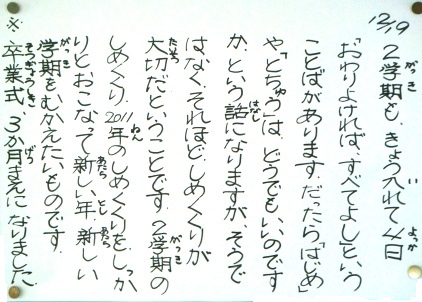 12/19
２学期も、きょう入れて４日
「おわりよければ、すべてよし」という
ことばがあります。だったら「はじめ」
や「とちゅう」は、どうでもいいのです
か、という話になりますが、そうで
はなく、それほど、しめくくりが
大切だということです。２学期の
しめくくり、2011年のしめくくりを、しっか
りとおこなって新しい年、新しい
学期をむかえたいものです。
※卒業式、３か月まえになりました。